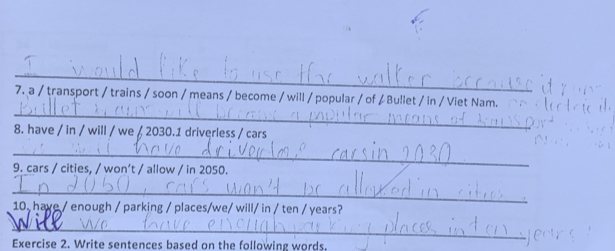 I would like to use the walker because it runs
7. a / transport / trains / soon / means / become / will / popular / of / Bullet / in / Viet Nam.
on electricity.
Bullet trains will become a popular means of transport
8. have / in / will / we / 2030.1 driverless / cars
we will have driverless cars in 2030
9. cars / cities, / won't / allow / in 2050.
In 2050, cars won't be allowed in cities.
10. have / enough / parking / places/we/ will/ in / ten / years?
Will we have enough parking places in ten years?
Exercise 2. Write sentences based on the following words.